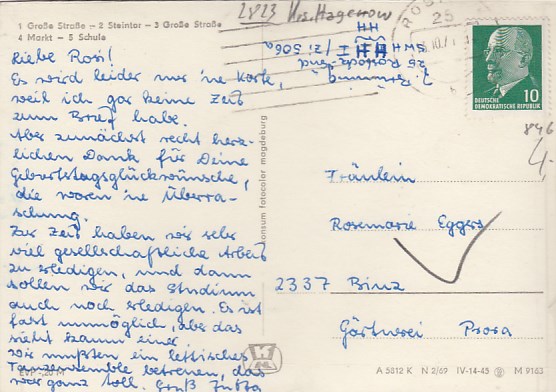 1 Große Straße – 2 Steintor – 3 Große Straße
4 Markt – 5 Schule
2823 Krs. Hagenow
25
25 Rostock-Süd
SWH
I / Zi 506a
DEUTSCHE
DEMOKRATISCHE REPUBLIK
10
846
4,-
Liebe Rosi!
Es wird leider nur 'ne Karte,
weil ich gar keine Zeit
zum Brief habe.
Aber zunächst recht herz-
lichen Dank für Deine
Geburtstagsglückwünsche,
die waren 'ne Überra-
schung.
Zur Zeit haben wir sehr
viel gesellschaftliche Arbeit
zu erledigen, und dann
sollen wir das Studium
auch noch erledigen. Es ist
fast unmöglich, aber das
sieht kaum einer.
Wir mußten ein lettisches
Tanzensemble betreuen, das
war ganz toll. Gruß Jutta
konsum fotocolor magdeburg
Fräulein
Rosemarie Eggers
2337 Binz
Gärtnerei Psora
EVP -,20 M
A 5012 K N 2/69 IV-14-45 M 9163